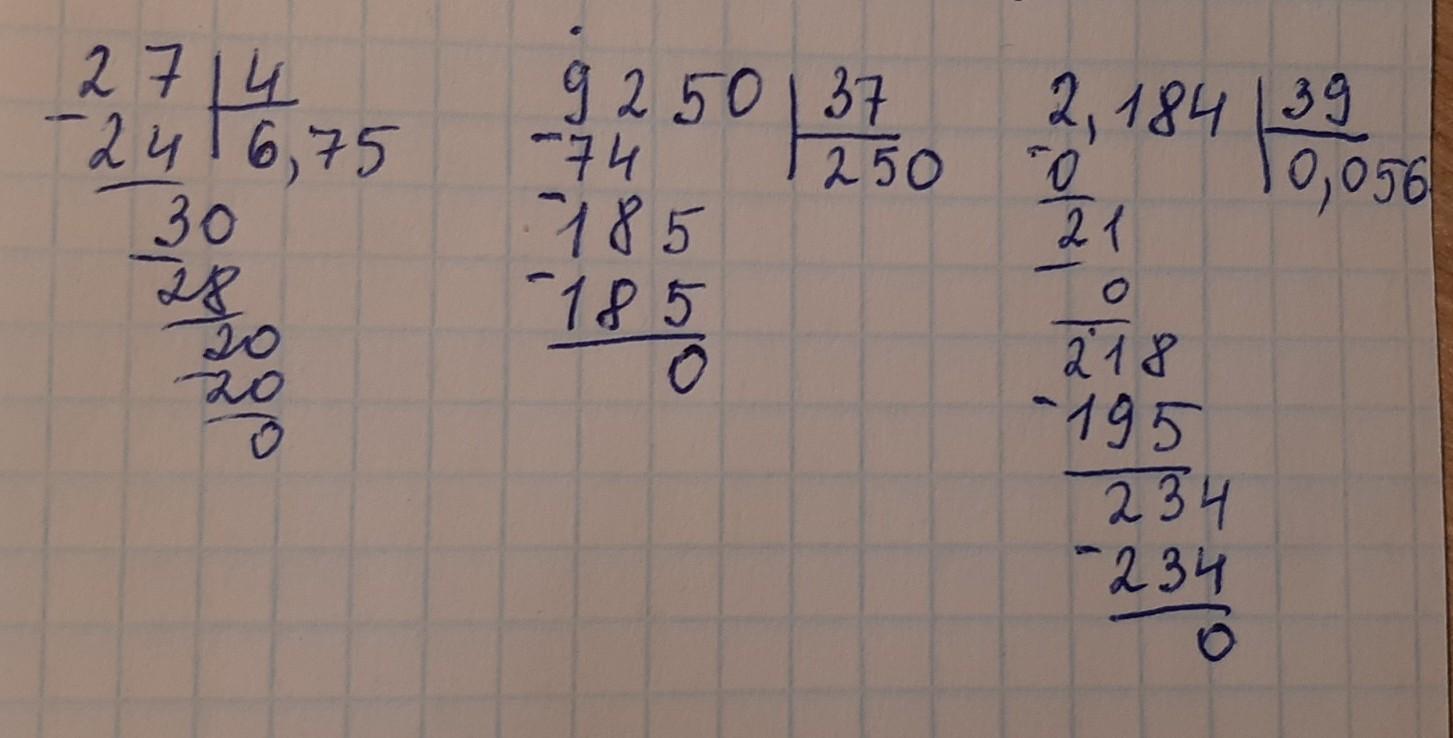 27 4
-24 6,75
30
-28
20
-20
0
9250 37
-74 250
-185
-185
0
2,184 39
-0 0,056
21
-0
218
-195
234
-234
0